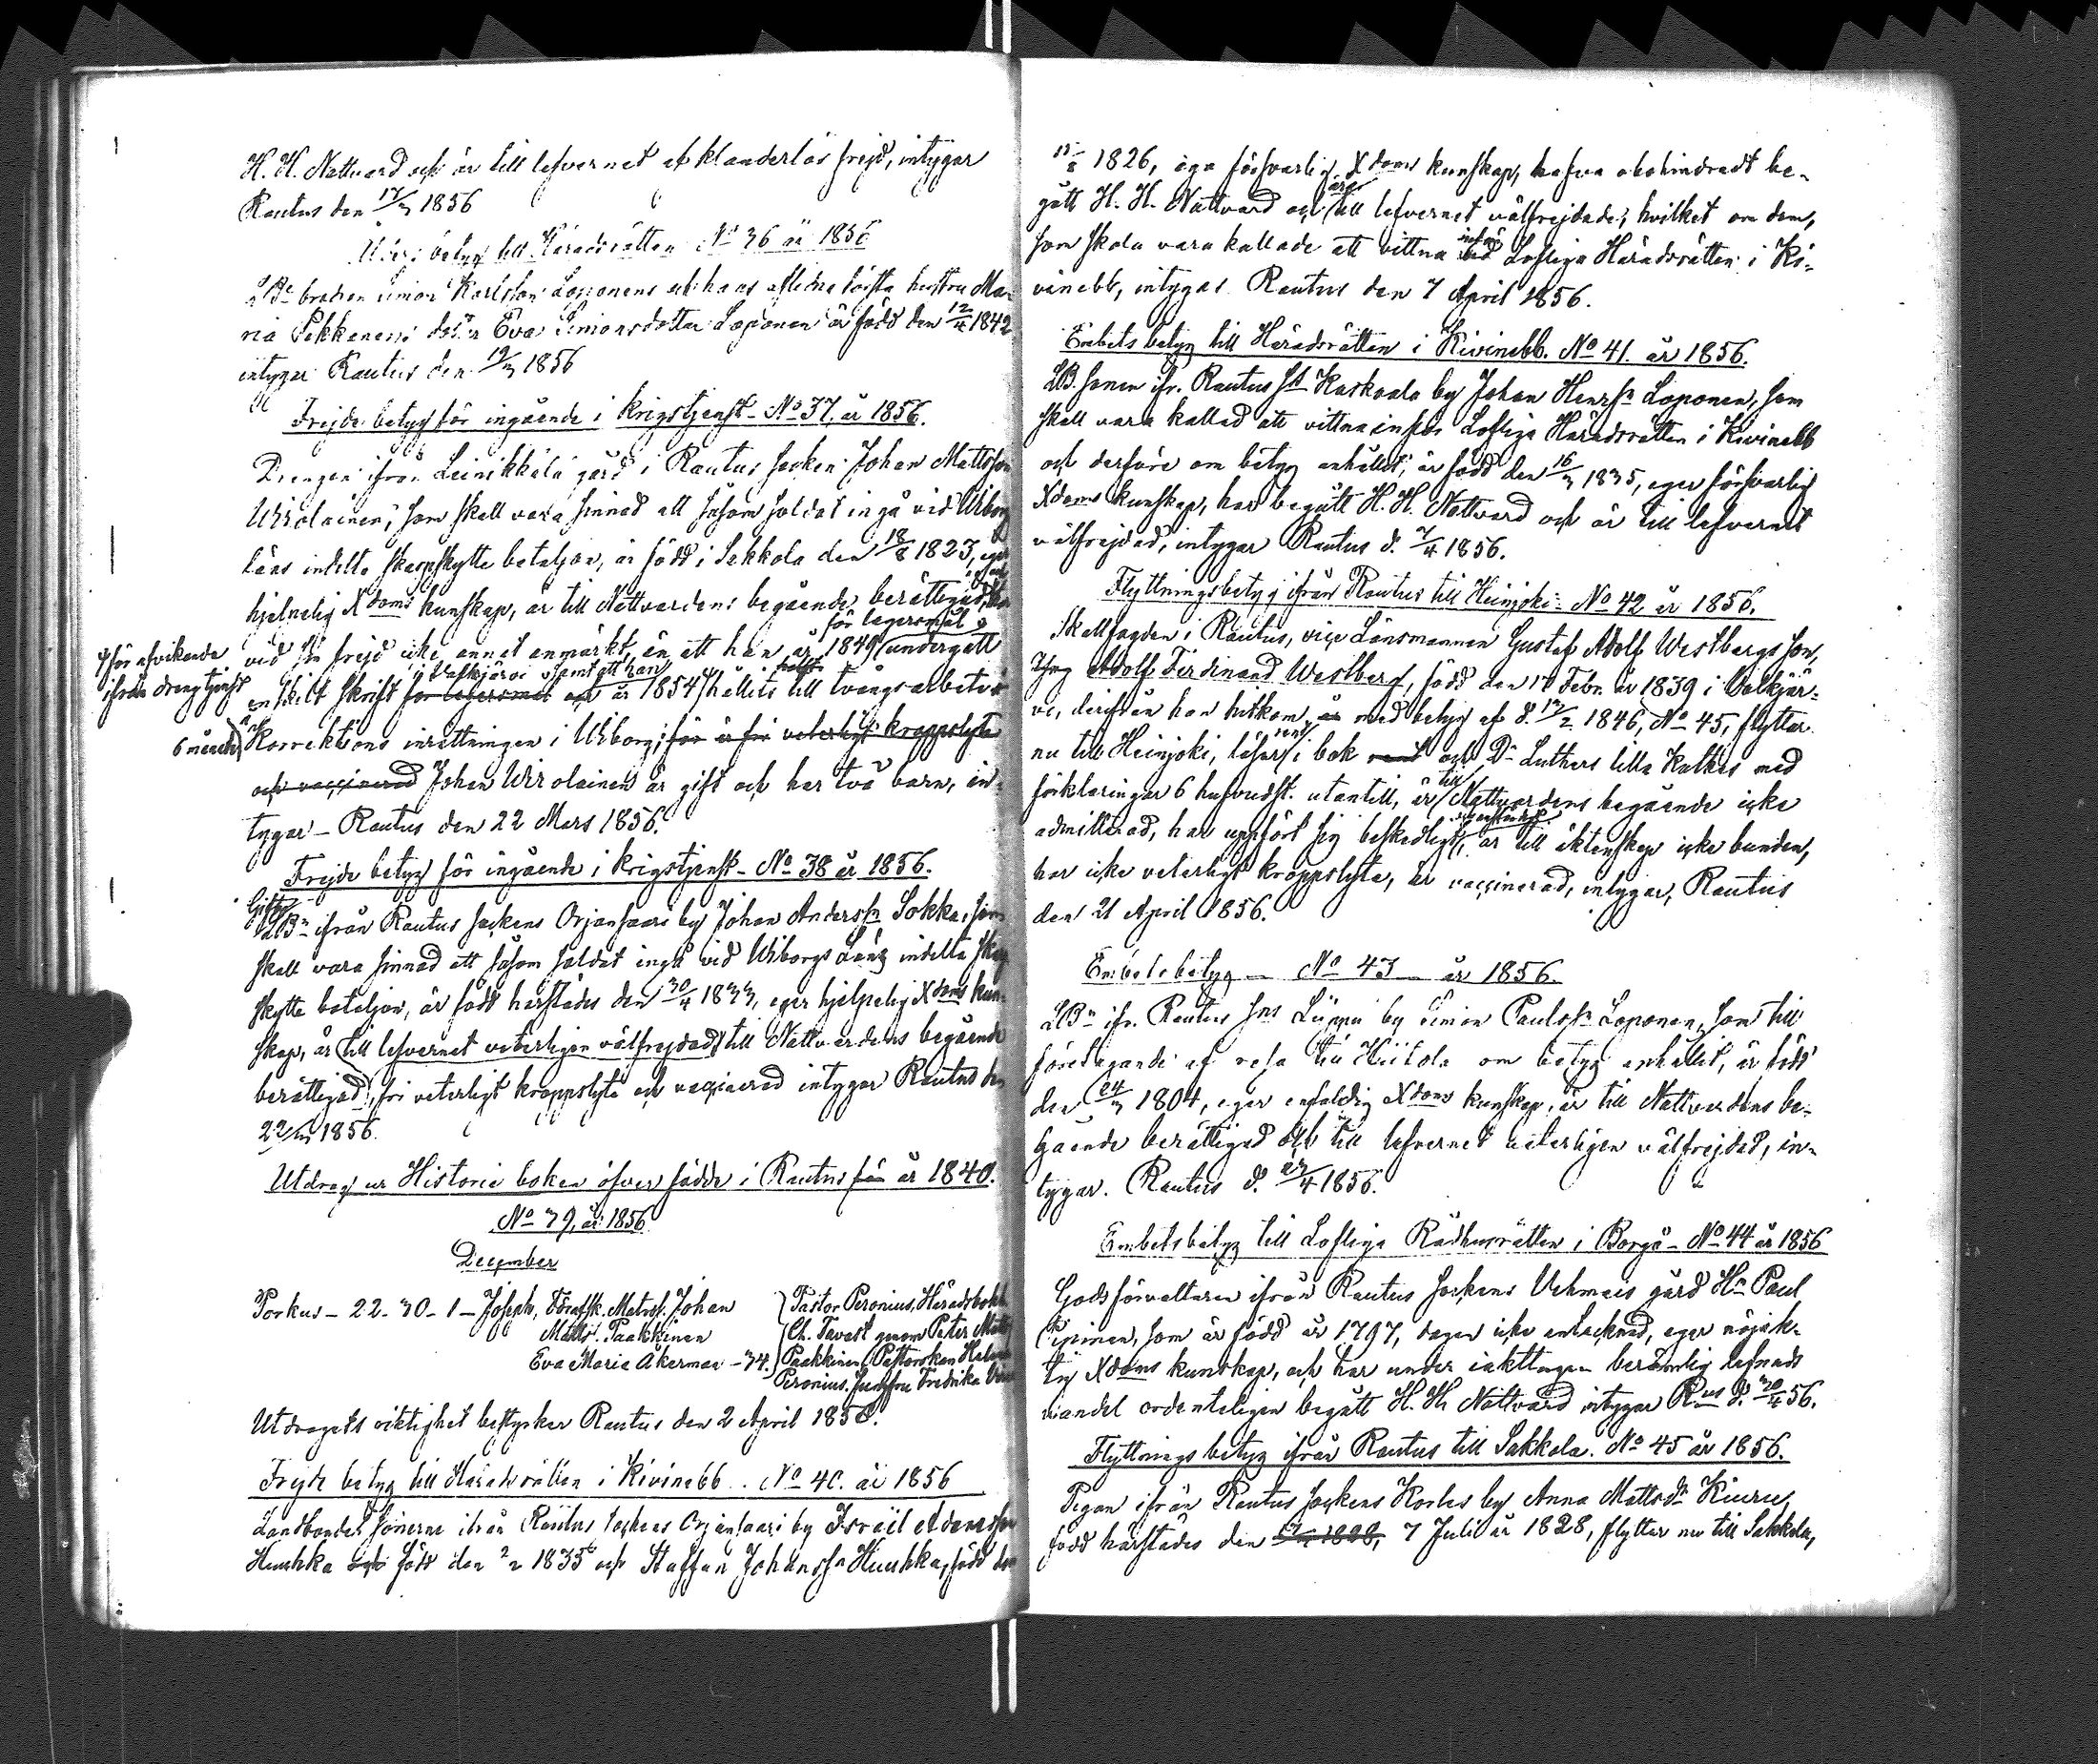 H. H. Nattvard och är till lefvernet af klanderlös frejd, intygar
Rautus den 17/3 1856
betyg till Häradsrätten No 36 år 1856
LBs brodren Simon Karlsson Loponens och hans aflidna första hustru Ma-
ria Pekkanens dotter Eva Simonsdotter Loponen är född den 12/4 1842
intygar Rautus den 19/3 1856
Frejde betyg för ingående i krigstjenst - No 37. år 1856.
Drengen ifrån Leinikkälä gård i Rautus socken Johan Mattsson
Wirolainen, som skall vara sinnad att såsom soldat ingå vid Wiborgs
läns indelta skarpskytte bataljon, är född i Sakkola den 18/8 1823, eger
hjelpelig Xdoms kunskap, är till Nattvardens begående berättigad,
för lägersmål
vid sin frejd icke annat anmärkt, än att han år 1849 undergått
för afvikande
ifrån drengtjenst
i Walkjärvi samt att han
enskilt skrift för lägersmål och år 1854 hållits till tvångsarbete i
6 månader
Korrektions inrättningen i Wiborg; för är fri veterligt kroppslyte
och vaccinerad Johan Wirolainen är gift och har två barn, in-
tygar - Rautus den 22 Mars 1856.
Frejde betyg för ingående i krigstjenst - No 38 år 1856.
Gifte
LBn ifrån Rautus sockens Orjansaari by Johan Anderssn Sokka, som
skall vara sinnad att såsom soldat ingå vid Wiborgs Läns indelta skarp
skytte bataljon, är född härstädes den 30/4 1833, eger hjelpelig Xdoms kun-
skap, är till lefvernet veterligen välfrejdad, till Nattvardens begående
berättigad, fri veterligt kroppslyte och vaccinerad intygar Rautus den
22/3 1856.
Utdrag ur Historie boken öfver födde i Rautus för år 1840.
No 39, år 1856
December
Porkus - 22 - 30 - 1 - Joseph, Johan
Matts. Paakkinen
Eva Maria Åkerman - 34.
Pastor Peronius, Häradsbokh
Ch. Tavast genom Peter Matts
Paakkinen, Pastorskan Helena
Peronius, Jungfru Fredrika
Utdragets riktighet bestyrker Rautus den 2 April 1856.
Frejde betyg till Häradsrätten i Kivinebb. No 40. år 1856
Landbonde sönerne ifrån Rautus sockens Orjansaari by Israel Adamsson
Huuhka och född den 2/2 1835 och Staffan Johanssn Huuhka, född den
1826, ega försvarlig Xdoms kunskap, hafva obehindradt be-
äro
gått H. H. Nattvard och till lefvernet välfrejdade, hvilket om dem,
inför
som skola vara kallade att vittna vid Lofliga Häradsrätten i Ki-
vinebb, intygas. Rautus den 7 April 1856.
Embets betyg till Häradsrätten i Kivinebb. No 41. år 1856.
LB. sonen ifr. Rautus Sn Kaskaala by Johan Henrsn Loponen, som
skall vara kallad att vittna inför Lofliga Häradsrätten i Kivinebb
och derföre om betyg anhållit, är född den 16/3 1835, eger försvarlig
Xdoms kunskap, har begått H. H. Nattvard och är till lefvernet
välfrejdad, intygar Rautus d. 7/4 1856.
Flyttningsbetyg ifrån Rautus till Heinjoki - No 42 år 1856.
Skallfogden i Rautus, vice Länsmannen Gustaf Adolf Westbergs son,
Yng Adolf Ferdinand Westberg, född den 17 Febr. år 1839 i Valkjär-
vi, derifrån han hitkom med betyg af d. 1846, No 45, flyttar
rent
nu till Heinjoki, läser i bok rent och Dr Luthers lilla Kathes med
till
förklaringar 6 hufvudst. utantill, är Nattvardens begående icke
admitterad, har uppfört sig beskedligt, är till äktenskap icke bunden,
har icke veterligt kroppslyte, är vaccinerad, intygar, Rautus
den 21 April 1856.
Embetsbetyg - No 43 - år 1856.
LBn ifr. Rautus Sns Lippu by Simon Paulsn Loponen, som till
företagande af resa till Hiitola om betyg anhållit, är född
den 24/3 1804, eger enfaldig Xdoms kunskap, är till Nattvardens be-
gående berättigad och till lefvernet veterligen välfrejdad, in-
tygar. Rautus d. 27/4 1856.
Embetsbetyg till Lofliga Rådhusrätten i Borgå - No 44 år 1856
Godsförvaltaren ifrån Rautus sockens Vehmais gård Hr Paul
som är född år 1797, dagen icke antecknad, eger nöjak-
tig Xdoms kunskap, och har under iakttagen berömlig lefnads
vandel ordenteligen begått H. H. Nattvard intygar Rus d. 30/4 56.
Flyttnings betyg ifrån Rautus till Sakkola. No 45 år 1856.
Pigan ifrån Rautus sockens Korles by Anna Mattsdr Kiuru,
född härstädes den 7 Juli år 1828, flyttar nu till Sakkola,